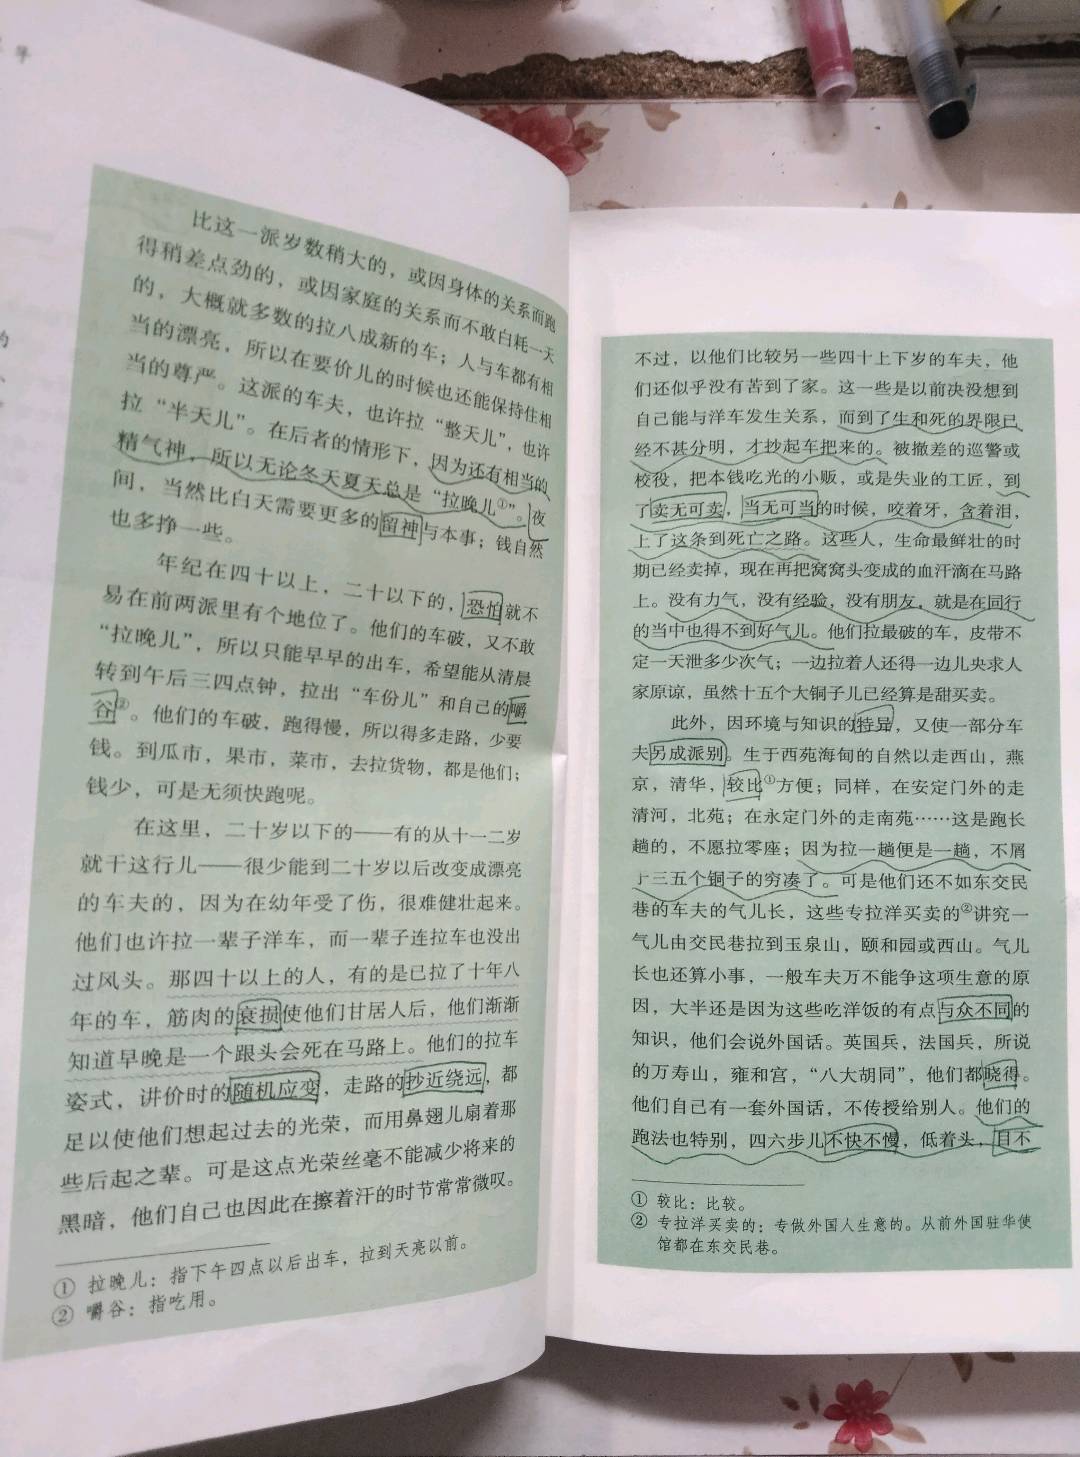 比这一派岁数稍大的，或因身体的关系而跑
得稍差点劲的，或因家庭的关系而不敢白耗一天
的，大概就多数的拉八成新的车；人与车都有相
当的漂亮，所以在要价儿的时候也还能保持住相
当的尊严。这派的车夫，也许拉“整天儿”，也许
拉“半天儿”。在后者的情形下，因为还有相当的
精气神，所以无论冬天夏天总是“拉晚儿①”。夜
间，当然比白天需要更多的留神与本事；钱自然
也多挣一些。
年纪在四十以上，二十以下的，恐怕就不
易在前两派里有个地位了。他们的车破，又不敢
“拉晚儿”，所以只能早早的出车，希望能从清晨
转到午后三四点钟，拉出“车份儿”和自己的嚼
谷②。他们的车破，跑得慢，所以得多走路，少要
钱。到瓜市，果市，菜市，去拉货物，都是他们；
钱少，可是无须快跑呢。
在这里，二十岁以下的——有的从十一二岁
就干这行儿——很少能到二十岁以后改变成漂亮
的车夫的，因为在幼年受了伤，很难健壮起来。
他们也许拉一辈子洋车，而一辈子连拉车也没出
过风头。那四十以上的人，有的是已拉了十年八
年的车，筋肉的衰损使他们甘居人后，他们渐渐
知道早晚是一个跟头会死在马路上。他们的拉车
姿式，讲价时的随机应变，走路的抄近绕远，都
足以使他们想起过去的光荣，而用鼻翅儿扇着那
些后起之辈。可是这点光荣丝毫不能减少将来的
黑暗，他们自己也因此在擦着汗的时节常常微叹。
① 拉晚儿：指下午四点以后出车，拉到天亮以前。
② 嚼谷：指吃用。
不过，以他们比较另一些四十上下岁的车夫，他
们还似乎没有苦到了家。这一些是以前决没想到
自己能与洋车发生关系，而到了生和死的界限已
经不甚分明，才抄起车把来的。被撤差的巡警或
校役，把本钱吃光的小贩，或是失业的工匠，到
了卖无可卖，当无可当的时候，咬着牙，含着泪，
上了这条到死亡之路。这些人，生命最鲜壮的时
期已经卖掉，现在再把窝窝头变成的血汗滴在马路
上。没有力气，没有经验，没有朋友，就是在同行
的当中也得不到好气儿。他们拉最破的车，皮带不
定一天泄多少次气；一边拉着人还得一边儿央求人
家原谅，虽然十五个大铜子儿已经算是甜买卖。
此外，因环境与知识的特异，又使一部分车
夫另成派别。生于西苑海甸的自然以走西山，燕
京，清华，较比①方便；同样，在安定门外的走
清河，北苑；在永定门外的走南苑……这是跑长
趟的，不愿拉零座；因为拉一趟便是一趟，不屑
于三五个铜子的穷凑了。可是他们还不如东交民
巷的车夫的气儿长，这些专拉洋买卖的②讲究一
气儿由交民巷拉到玉泉山，颐和园或西山。气儿
长也还算小事，一般车夫万不能争这项生意的原
因，大半还是因为这些吃洋饭的有点与众不同的
知识，他们会说外国话。英国兵，法国兵，所说
的万寿山，雍和宫，“八大胡同”，他们都晓得。
他们自己有一套外国话，不传授给别人。他们的
跑法也特别，四六步儿不快不慢，低着头，目不
① 较比：比较。
② 专拉洋买卖的：专做外国人生意的。从前外国驻华使
馆都在东交民巷。